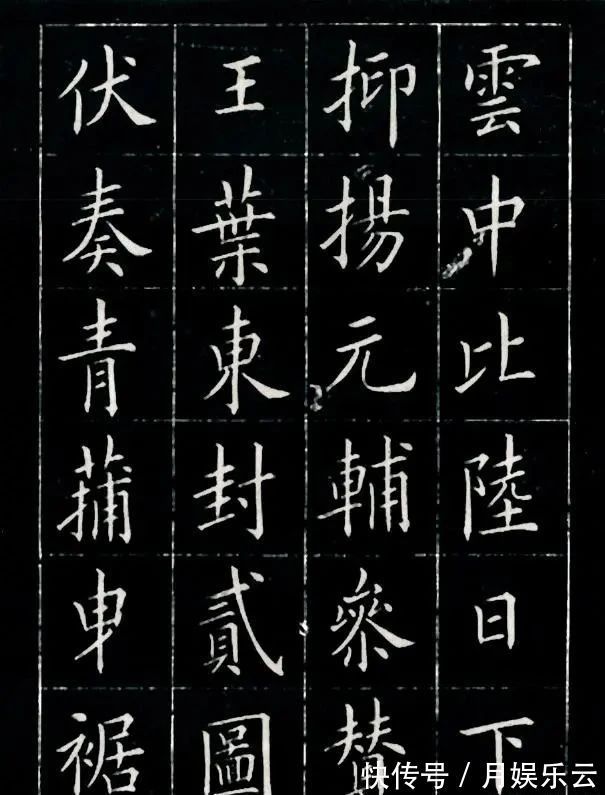 雲中比陸日下
抑揚元輔參賛
王葉東封貳圖
伏奏青蒲曳裾
快传号 / 月娱乐云